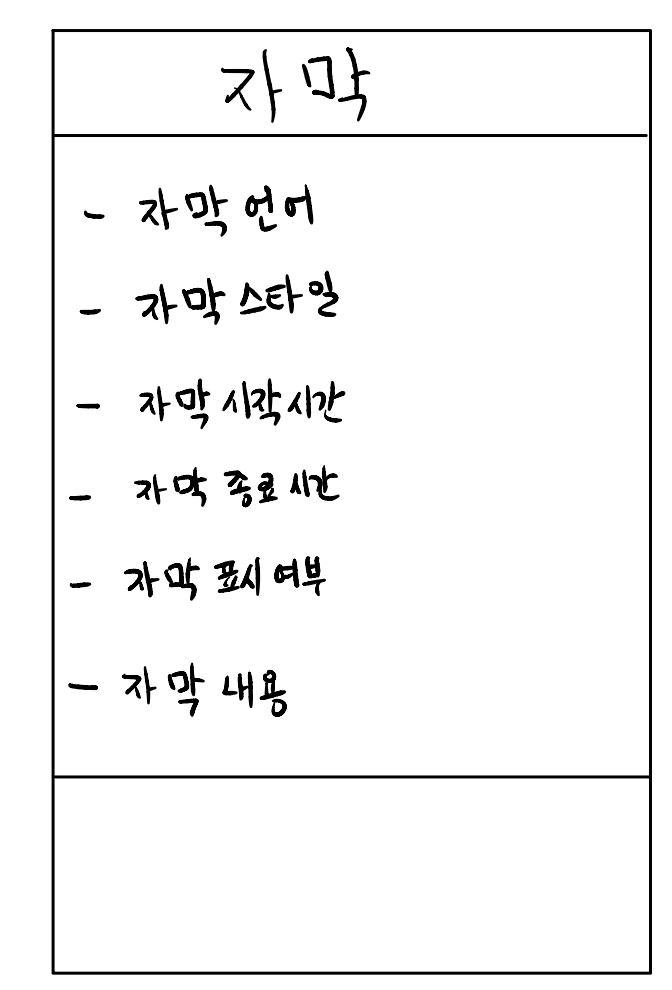 자막
- 자막 언어
- 자막 스타일
- 자막 시작시간
- 자막 종료 시간
- 자막 표시 여부
- 자막 내용